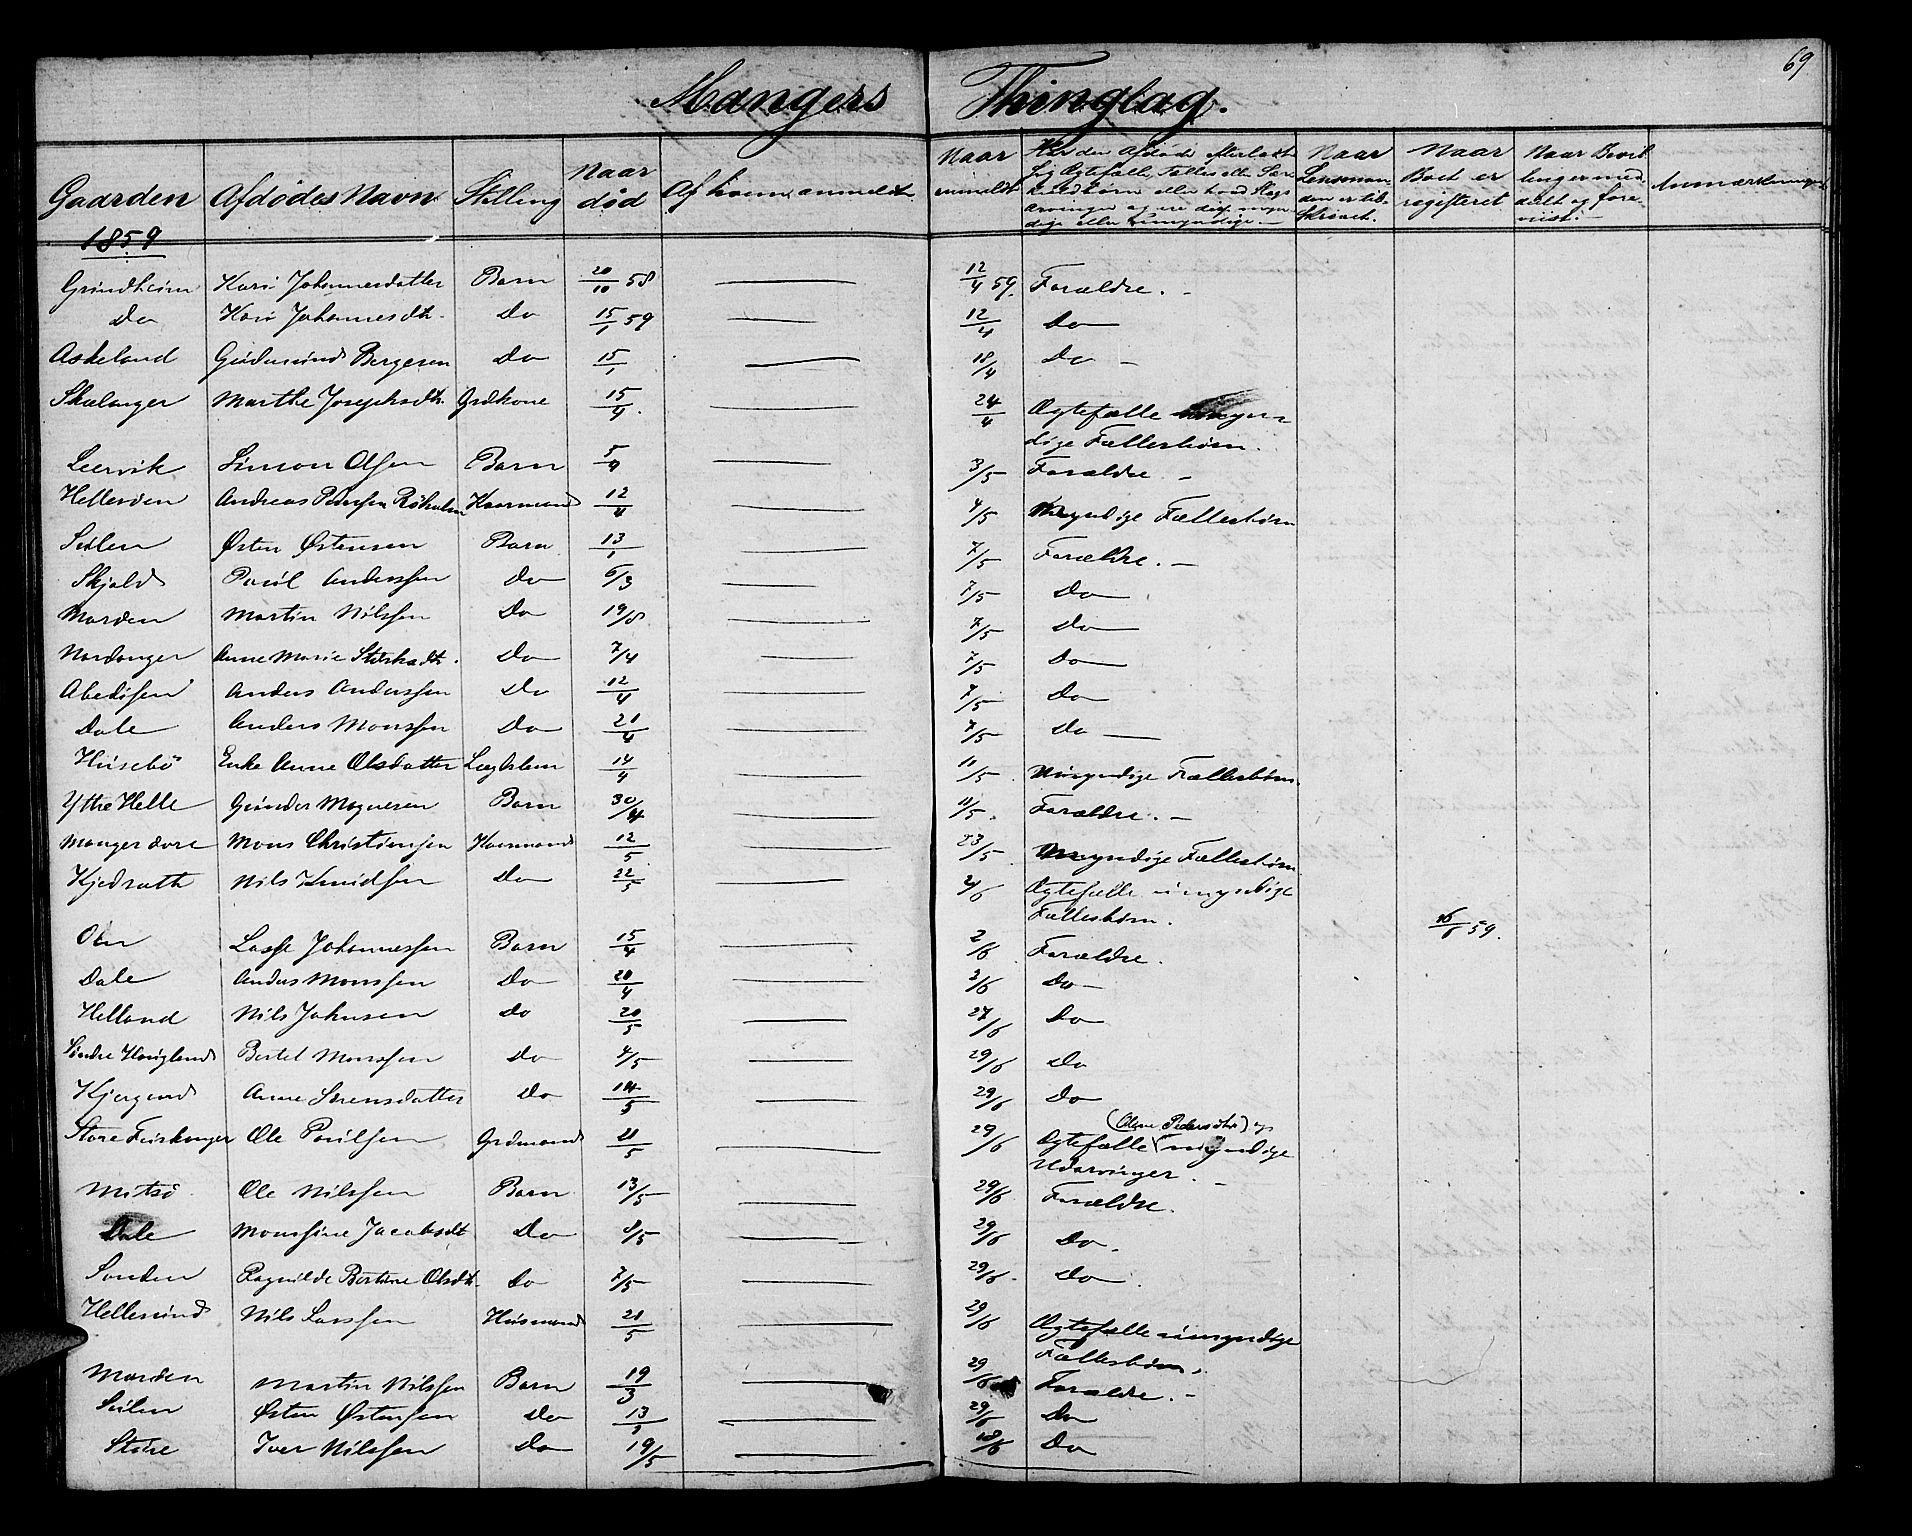 69
Mangers Thinglag.
Gaarden | Afdødes Navn | Stilling | Naar død | Af hvem anmeldt | Naar anmeldt | Har den Afdøde efterladt sig Ægtefælle, Fælles eller Særkuldbørn eller hvad Slags Arvinger og ere disse myndige eller umyndige. | Naar Lensmanden er tilskrevet. | Naar Boet er registeret | Naar Bevillinger meddelt og foreviist. | Anmærkninger
1859
Grindheim | Kari Johannesdatter | Barn | 20/10 58 | — | 12/4 59. | Forældre. -
Do | Kari Johannesdtr. | Do | 15/1 59 | — | 12/4 | Do
Askeland | Gudmund Bergesen | Do | 15/1 | — | 18/4 | Do -
Skælanger | Marthe Josephsdtr. | Grdkone | 15/4. | — | 24/4 | Ægtefælle umyn=
dige Fællesbørn.
Leervik | Simon Olsen | Barn | 5/4 | — | 3/5 | Forældre. -
Hellesøen | Andreas Pedersen Røholm | Kaarmand | 12/4 | — | 4/5 | Myndige Fællesbørn
Seilen | Østen Østensen | Barn | 13/1 | — | 7/5 | Forældre. -
Skjold | Poul Anderssen | Do | 6/3 | — | 7/5 | Do
Marøen | Martin Nilssen | Do | 19/8 | — | 7/5 | Do
Nordanger | Anne Marie | Do | 7/4 | — | 7/5 | Do
Anders Anderssen | Do | 12/4 | — | 7/5 | Do
Dale | Anders Monssen | Do | 21/4 | — | 7/5 | Do
Husebø | Enke Anne Olsdatter | Lægdslem | 14/4 | — | 11/5 | Umyndige Fællesbørn.
Ytre Helle | Gunder Magnesen | Barn | 30/4 | — | 11/5. | Forældre. -
Manger øvre | Mons Christiansen | Kaarmand | 12/5 | — | 23/5 | Myndige Fællesbørn
Kjedsøth | Nils Knudsen | Do | 22/5 | — | 2/6 | Ægtefælle umyndige
Fællesbørn. | 16/6 59.
Oen | Lasse Johannessen | Barn | 15/4 | — | 2/6 | Forældre.
Dale | Anders Monssen | Do | 20/4 | — | 3/6 | Do -
Helland | Nils Johnsen | do | 20/5 | — | 27/6 | Do
Søndre Hougland | Bertel Monssen | Do | 4/5 | — | 29/6 | Do
Kjergand | Anne Sørensdatter | Do | 14/5 | — | 29/6 | Do
(Oline Pedersdtr) og
Store Fiuskanger | Ole Poulsen | Grdmand | 21/5 | — | 29/6 | Ægtefælle myndige
Udarvinger. -
Mutsø | Ole Nilssen | Barn | 13/5 | — | 29/6 | Forældre.
Dale | Monsine Jacobsdt | Do | 8/5 | — | 29/6 | Do.
Sonden | Ragnilde Bertine Olsdtr. | Do | 7/5 | — | 29/6. | Do.
Hellesund | Nils Larssen | Huusmand | 21/5 | — | 29/6 | Ægtefælle umyndige
Fællesbørn.
Marøen | Martin Nilssen | Barn | 19/3 | — | 29/6 | Forældre. -
Seilen | Østen Østensen | Do | 13/1 | — | 29/6 | Do
Støre | Iver Nilssen | Do | 19/5 | — | 18/6 | Do